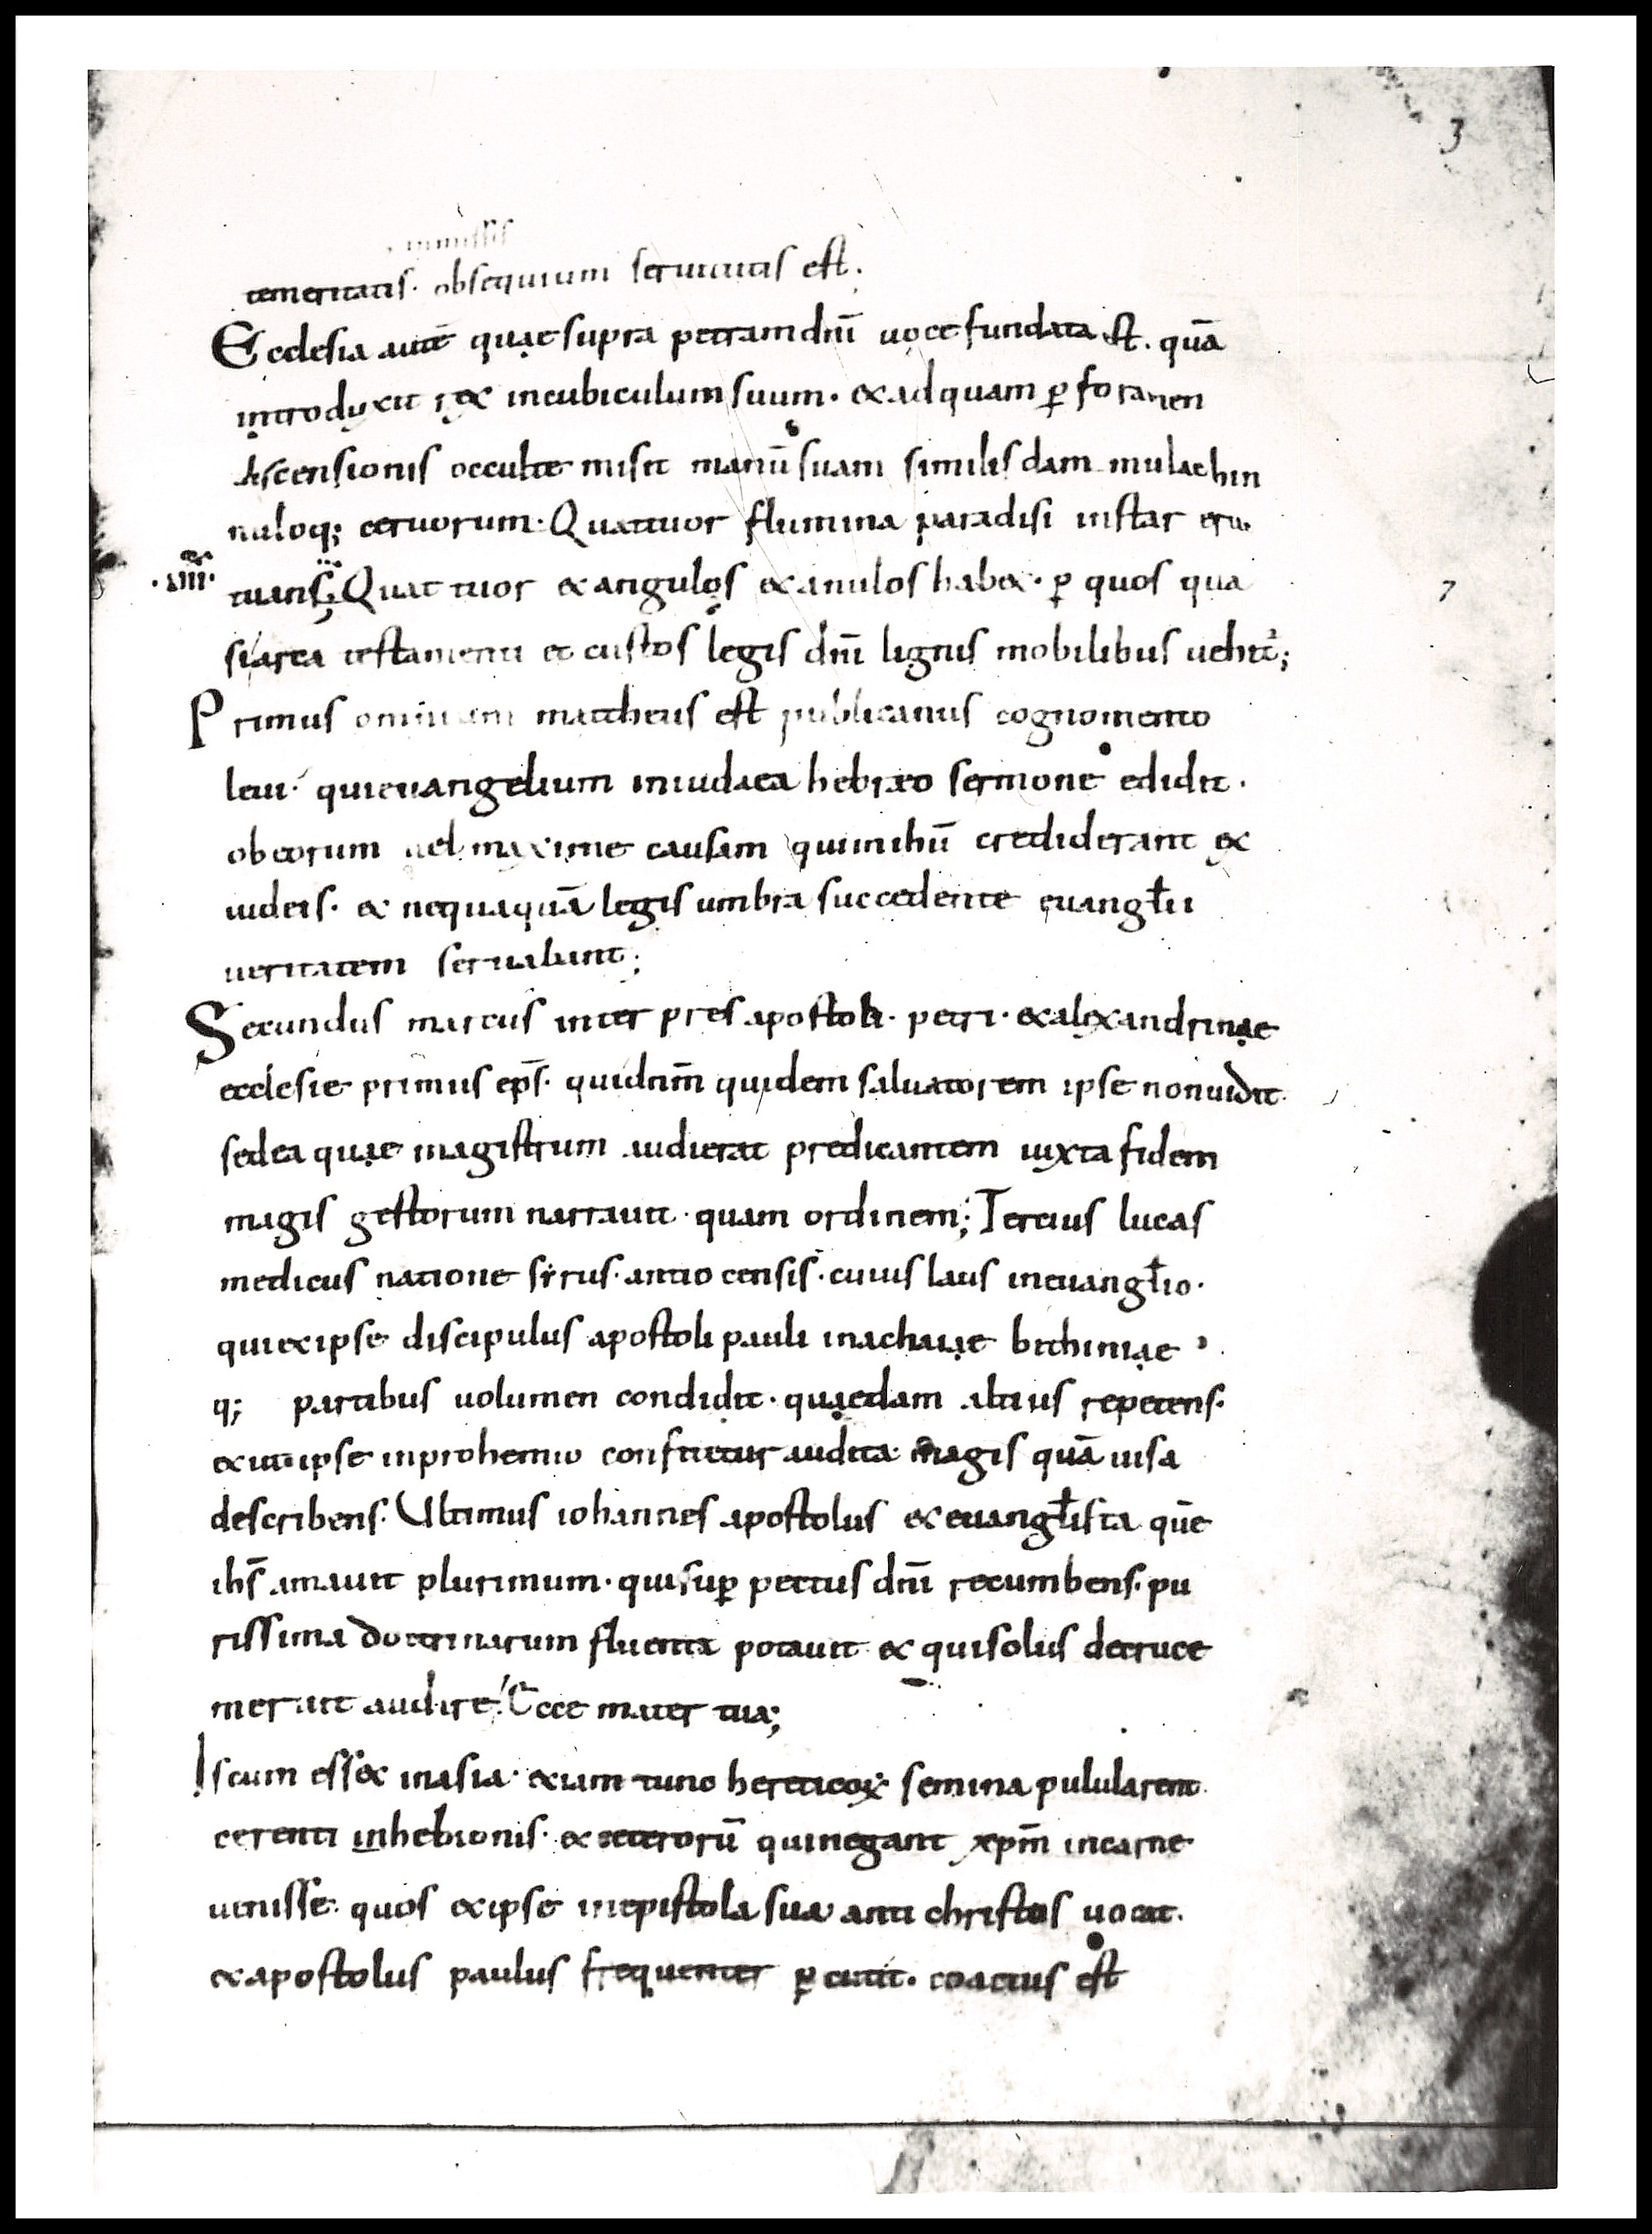 3
temeritatis· obsequium seruitutis est;
Ecclesia autē quae supra petram dn̄i uoce fundata est. quā
introduxit rex incubiculum suum· et ad quam ꝑ foramen
discensionis occulte misit manū suam similis dam mulae hin
nuloq; ceruorum· Quattuor flumina paradisi instar eruc
tuans; Quattuor et angulos et anulos habet· ꝑ quos qua
·IIII·
7
si arca testamenti et custos legis dn̄i lignis mobilibus uehit᷑;
Primus omnium mattheus est publicanus cognomento
leui· qui euangelium iniudaea hebraeo sermone edidit·
ob eorum uel maxime causam qui inih̄u crediderant ex
iudeis· et nequaquā legis umbra succedente euangl̄ii
ueritatem seruabant;
Secundus marcus interpres apostoli· petri· et alexandrinae
ecclesie primus ep̄s· qui dn̄m quidem saluatorem ipse nonuidit·
sed ea quae magistrum audierat predicantem iuxta fidem
magis gestorum narrauit· quam ordinem; Tercius lucas
medicus natione syrus· antiocensis· cuius laus ineuangl̄io·
qui et ipse discipulus apostoli pauli inachaiae bithiniae
q; partibus uolumen condidit· quaedam altius repetens·
et ut ipse inprohemio confitetur audita magis quā uisa
describens· Ultimus iohannes apostolus et euangl̄ista quē
ih̄s amauit plurimum· qui suꝑ pectus dn̄i recumbens· pu
rissima doctrinarum fluenta potauit et qui solus decruce
meruit audire· Ecce mater tua;
Is cum esset inasia· etiam tunc hereticoꝝ semina pulularent
cerenti inhebionis· et ceterorū quinegant xp̄m incarne
uenisse· quos et ipse inepistola sua anti christos uocat·
et apostolus paulus frequenter ꝑcutit· coactus est